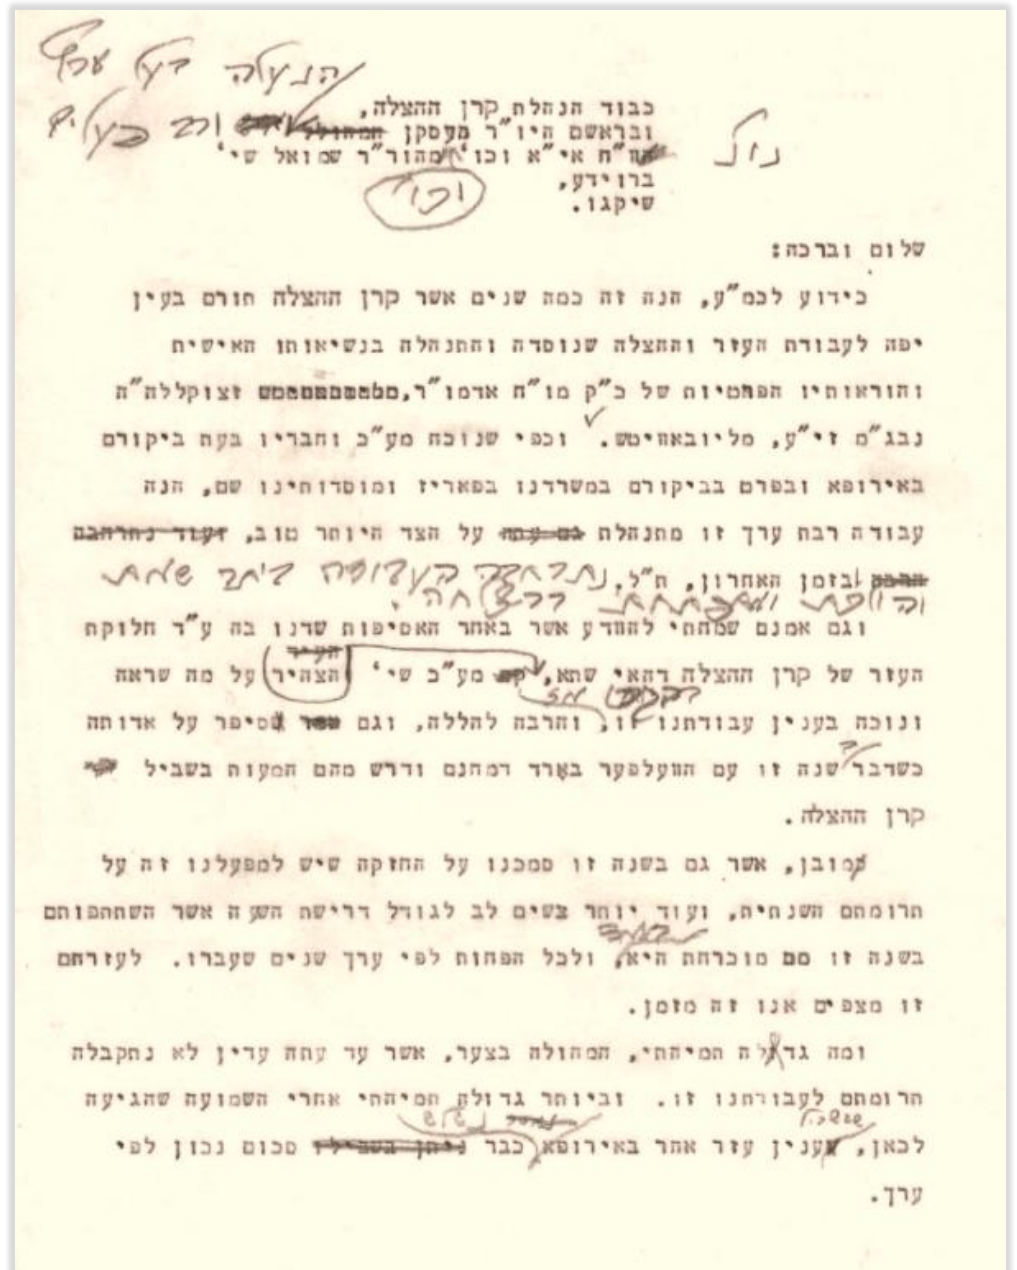 הנעלה בעל ערך
כבוד הנהלת קרן ההצלה,
ובראשם היו"ר מעסקן המהולל ורב פעלים
נו"נ
אי"א וכו' מהור"ר שמואל שי'
וכו'
ברוידע,
שיקגו.
שלום וברכה:
כידוע לכמ"ע, הנה זה כמה שנים אשר קרן ההצלה תורם בעין
יפה לעבודת העזר וההצלה שנוסדה והתנהלה בנשיאותו האישית
והוראותיו הפרטיות של כ"ק מו"ח אדמו"ר, זצוקללה"ה
נבג"מ זי"ע, מליובאוויטש. וכפי שנוכח מע"כ וחבריו בעת ביקורם
באירופא ובפרט בביקורם במשרדנו בפאריז ומוסדותינו שם, הנה
עבודה רבת ערך זו מתנהלת גם עתה על הצד היותר טוב, ועוד נתרחבה
הרבה ובזמן האחרון, ת"ל, נתרחבה העבודה ביתר שאת
בהצלחה.
וגם אמנם שמחתי להוודע אשר באחר האסיפות שדנו בה ע"ד חלוקת
העיר
העזר של קרן ההצלה דהאי שתא, קם מע"כ שי' הצהיר על מה שראה
ונוכח בענין עבודתנו זו, והרבה להללה, וגם סיפר על אדותה
כשדבר שנה זו עם הוועלפער באָרד דמחנם ודרש מהם המעות בשביל
קרן ההצלה.
כמובן, אשר גם בשנה זו סמכנו על החזקה שיש למפעלנו זה על
תרומתם השנתית, ועוד יותר בשים לב לגודל דרישת השעה אשר השתתפותם
בשנה זו מוכרחת היא, ולכל הפחות לפי ערך שנים שעברו. לעזרתם
זו מצפים אנו זה מזמן.
ומה גדלה תמיהתי, המהולה בצער, אשר עד עתה עדין לא נתקבלה
תרומתם לעבודתנו זו. וביותר גדולה תמיהתי אחרי השמועה שהגיעה
שבשביל
לכאן, ענין עזר אחר באירופא כבר ניתן בשבילו סכום נכון לפי
ערך.